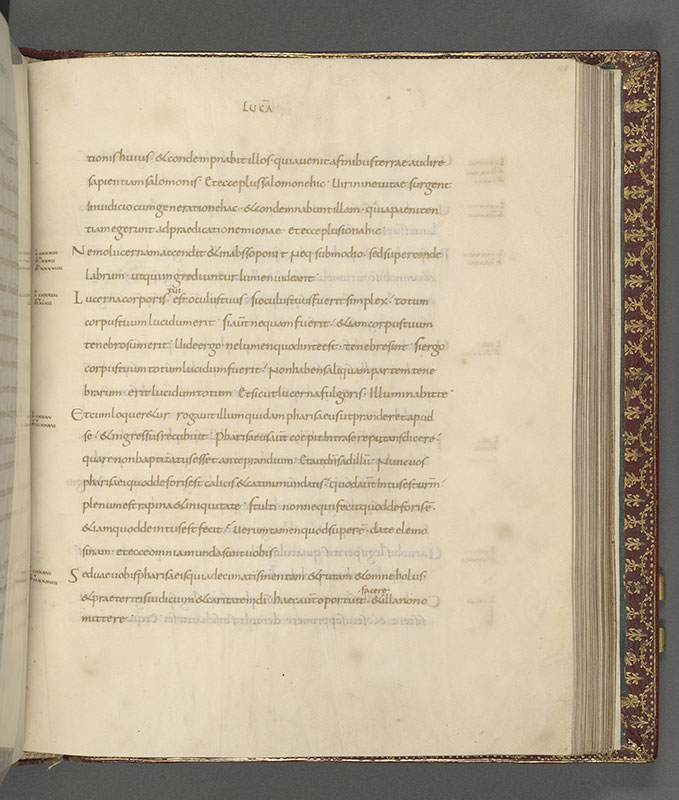 LUCĀ
tionishuius · &condempnabitillos · quiauenitafinibusterrae audire
sapientiamsalomonis · Etecceplussalomonehic · Uirinineuitae surgent
Iniudiciocumgenerationehac · &condemnabuntillam · quiapaeniten
tiamegerunt adpraedicationemionae etecceplusionahic ·
Nemolucernamaccendit &inabssoponit Neq submodio · sedsupercande
labrum utquiingrediuntur lumenuideant
Lucernacorporis · tui estoculustuus sioculustuusfuerit simplex · totum
corpustuumlucidumerit siautnequamfuerit · &iamcorpustuum
tenebrosumerit Uideergo nelumenquodinteest · tenebresint siergo
corpustuumtotumlucidumfuerit · Nonhabensaliquampartemtene
brarum erit lucidumtotum Etsicutlucernafulgoris · Illuminabitte ·
Etcumloquer&ur rogauitillumquidam pharisaeusutpranderetapud
se · &ingressusrecubuit Pharisaeusaut coepitintrasereputansdicere ·
quarenonbaptizatusesset anteprandium Etaitdnsadillū · Nuncuos
pharisaeiquoddeforisest calicis &catinimundatis · quodautintusesturm
plenumestrapina &iniquitate · stulti nonnequifecitquoddeforise ·
&iamquoddeintusest fecit Ueruntamenquodsuperē · date elemo
sinam · etecceomniamundasuntuobis ·
Seduaeuobispharisaeisquiadecimatismentam &rutam &omneholus ·
&praeteritisiudicium &caritatemdī haecautoportuit facere · &illanono
mittere ·